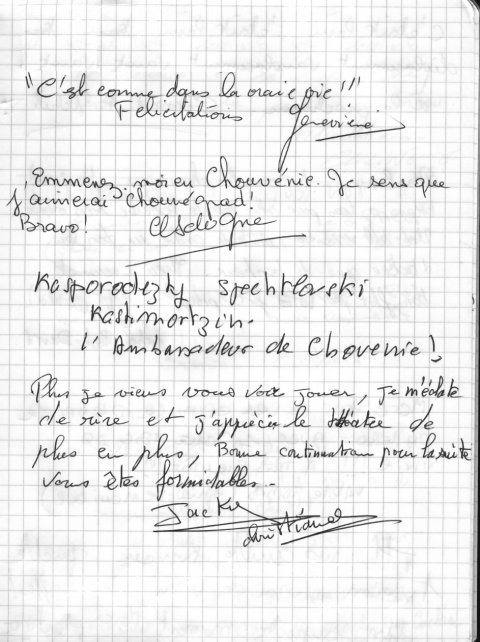 "C'est comme dans la vraie vie !!!"
Felicitations
Geneviève
Emmenez moi en Chouvénie. Je sens que
j'aimerai Chouvégrad!
Bravo!
Kasporodezky Spechtlovski
Kastimortzin.
l'Ambassadeur de Chovenie!
Plus je viens vous voir jouer, je m'éclate
de rire et j'apprécie le théatre de
plus en plus, Bonne continuation pour la suite
vous êtes formidables.
Jacky
Christiane